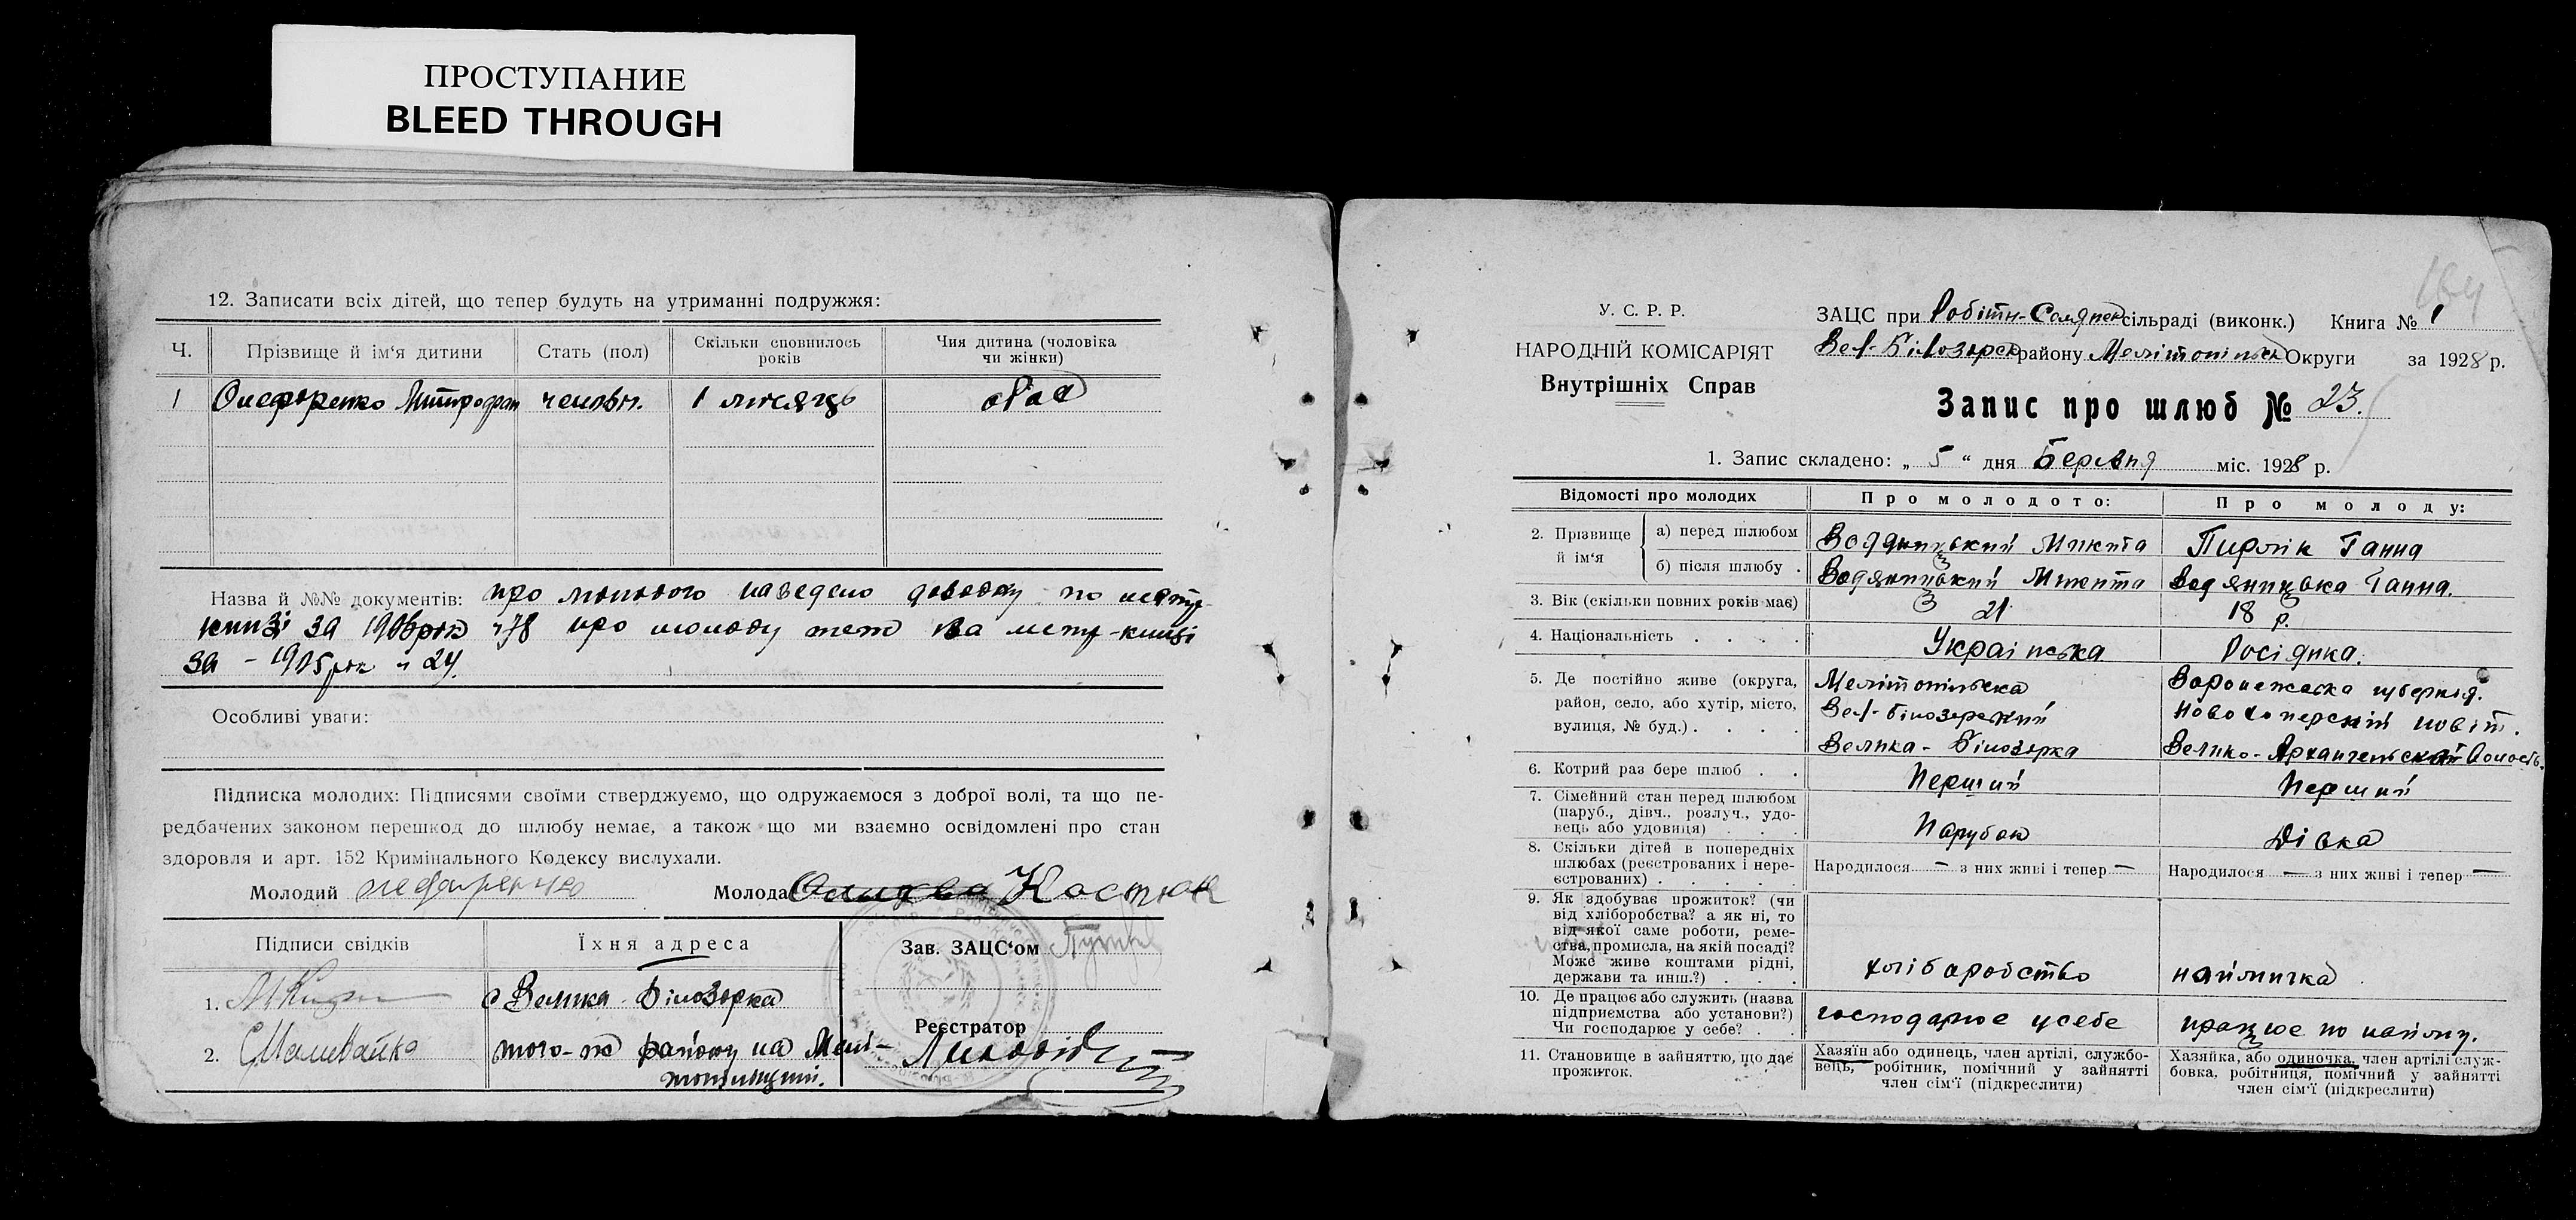 ПРОСТУПАНИЕ
BLEED THROUGH
12. Записати всіх дітей, що тепер будуть на утриманні подружжя:
Ч.
Прізвище й ім‘я дитини
Стать (пол)
Скільки сповнилось
років
Чия дитина (чоловіка
чи жінки)
1 Онефренко Митрофан чоловч. 1 місяць обох
Назва й №№ документів: про молодого наведено довідку по метр-
книзі за 1906 рок №78 про молоду теж на метр-книзі
за - 1905 рок № 24.
Особливі уваги:
Підписка молодих: Підписями своїми стверджуємо, що одружаємося з доброї волі, та що пе-
редбачених законом перешкод до шлюбу немає, а також що ми взаємно освідомлені про стан
здоровля и арт. 152 Кримінального Кодексу вислухали.
Молодий
Молода Костюк
Підписи свідків
Їхня адреса
Зав. ЗАЦС‘ом
1.
с Велика-Білозорка
Реєстратор
2.
того-ж району на Мелі-
топільщині.
У. С. Р. Р.
НАРОДНІЙ КОМІСАРІЯТ
Внутрішніх Справ
164
ЗАЦС при Робітн-Селянск сільраді (виконк.) Книга № 1
Вел-Білозорск району Мелітопільск Округи за 1928 р.
Запис про шлюб № 23.
1. Запис складено: „ 5 “ дня Березня міс. 1928 р.
Відомості про молодих
Про молодого:
Про молоду:
2. Прізвище й ім‘я
а) перед шлюбом Водяницький Микита Пирлік Ганна
б) після шлюбу . Водяницький Микита Водяницька Ганна.
3. Вік (скільки повних років має) 21 18 р.
4. Національність . . . . Українська Росіянка.
5. Де постійно живе (округа,
район, село, або хутір, місто,
вулиця, № буд.) . . . .
Мелітопільска
Вел-білозерский
Велика-Білозорка
Воронежська губерния.
Новохоперский повіт.
Велико-Архангельский волость.
6. Котрий раз бере шлюб . . Перший Перший
7. Сімейний стан перед шлюбом
(паруб., дівч., розлуч., удо-
вець або удовиця) . . . Парубок Дівка
8. Скільки дітей в попередніх
шлюбах (реєстрованих і нере-
єстрованих) . . . . .
Народилося — з них живі і тепер —
Народилося — з них живі і тепер —
9. Як здобуває прожиток? (чи
від хліборобства? а як ні, то
від якої саме роботи, реме-
ства, промисла, на якій посаді?
Може живе коштами рідні,
держави та инш.?) . . .
хліборобство наймичка
10. Де працює або служить (назва
підприємства або установи?)
Чи господарює у себе? . .
господарює у себе працює по найму.
11. Становище в зайняттю, що дає
прожиток.
Хазяїн або одинець, член артілі, службо-
вець, робітник, помічний у зайнятті
член сім‘ї (підкреслити)
Хазяйка, або одиночка, член артілі служ-
бовка, робітниця, помічний у зайнятті
член сім‘ї (підкреслити)